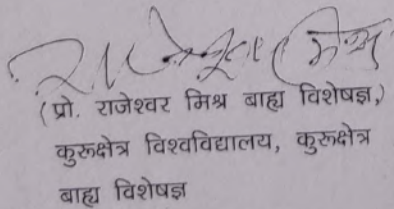 राजेश्वर मिश्र
(प्रो. राजेश्वर मिश्र बाह्य विशेषज्ञ,)
कुरूक्षेत्र विश्वविद्यालय, कुरूक्षेत्र
बाह्य विशेषज्ञ